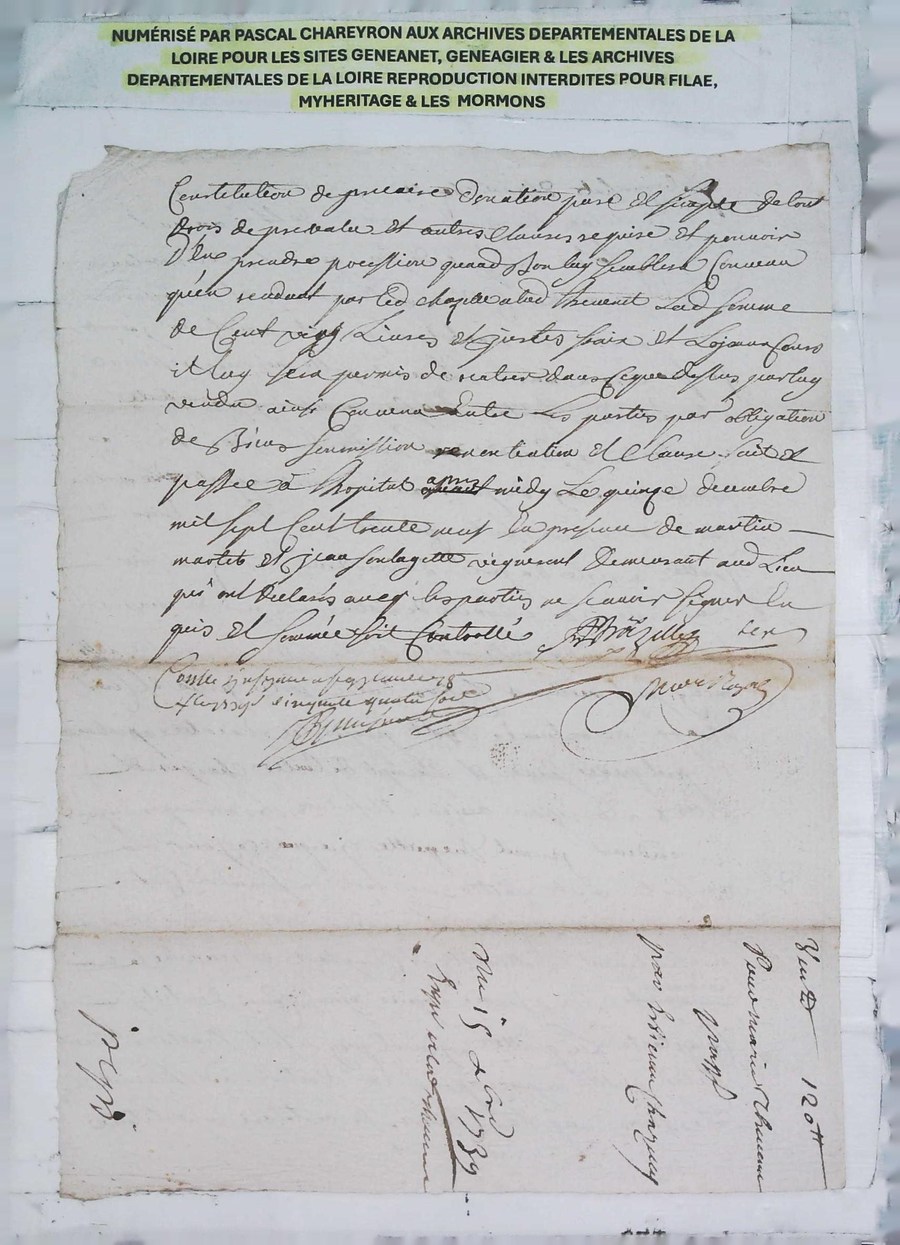 NUMÉRISÉ PAR PASCAL CHAREYRON AUX ARCHIVES DEPARTEMENTALES DE LA
LOIRE POUR LES SITES GENEANET, GENEAGIER & LES ARCHIVES
DEPARTEMENTALES DE LA LOIRE REPRODUCTION INTERDITES POUR FILAE,
MYHERITAGE & LES MORMONS
Constitution de precaire donation pure et simple de tout
drois de prevalu et autres clauses requise et pouvoir
D'en prendre pocession quand Bon luy semblera Convenu
qu'en rendant par led a lad thevenet Lad somme
de Cent vingt Livres et justes frais et Lojeaux Cours
il luy sera permis de rentrer dans ce que dessus par luy
vendu ainsi Convenu Entre Les parties par obligation
de Biens soumission renontiation et Clause fait et
passée à Lhopital apres midy Le quinze decembre
mil sept Cent trente neuf En presence de martin
et jean vigneront Demeurant aud Lieu
qui ont declarés avec les parties ne scavoir signer En
quis et sommée soit Controllé
nore Royal
cinquante quatre sols
Vente 120ᵗᵗ
Pour marie
par Estienne
Du 15 xbre 1739